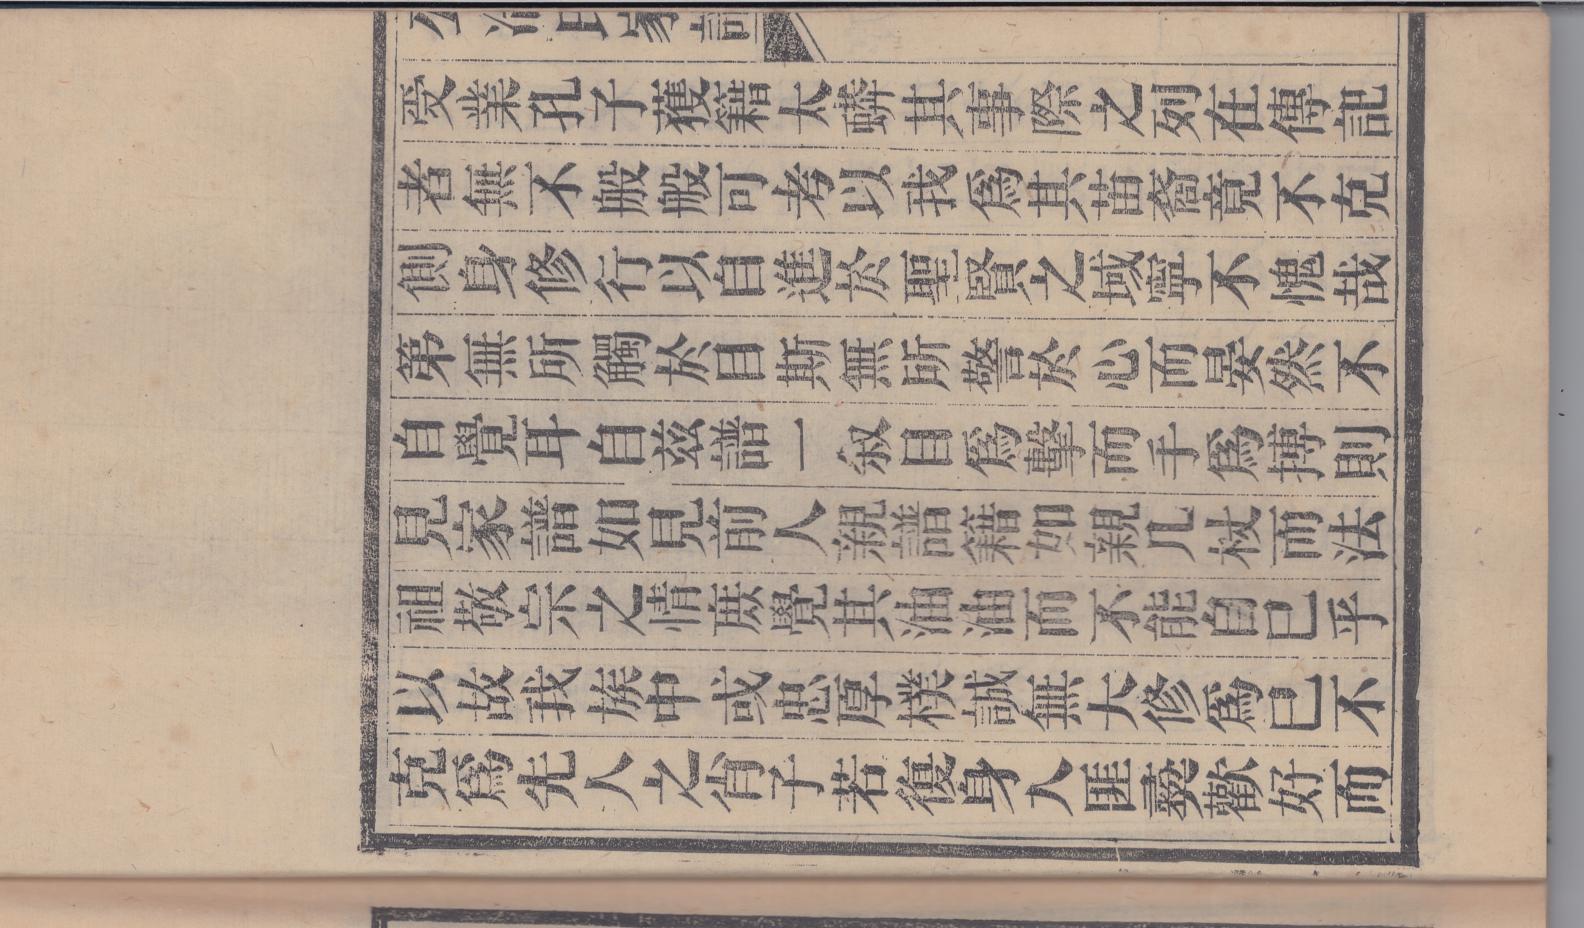 公冶氏家譜
受業孔子獲籍太蟒其事際之列在傳記
者無不般般可考以我爲其苗裔竟不克
側身修行以自進於聖賢之域寧不愧哉
第無所觸於目斯無所警於心而晏然不
自覺耳自茲譜一叙目爲擊而手爲摶則
見家譜如見前人親譜籍如親几杖而法
祖敬宗之情庶覺其油油而不能自已乎
以故我族中或忠厚樸誠無大修爲已不
克爲先人之肖子若復身入匪彞歡好而